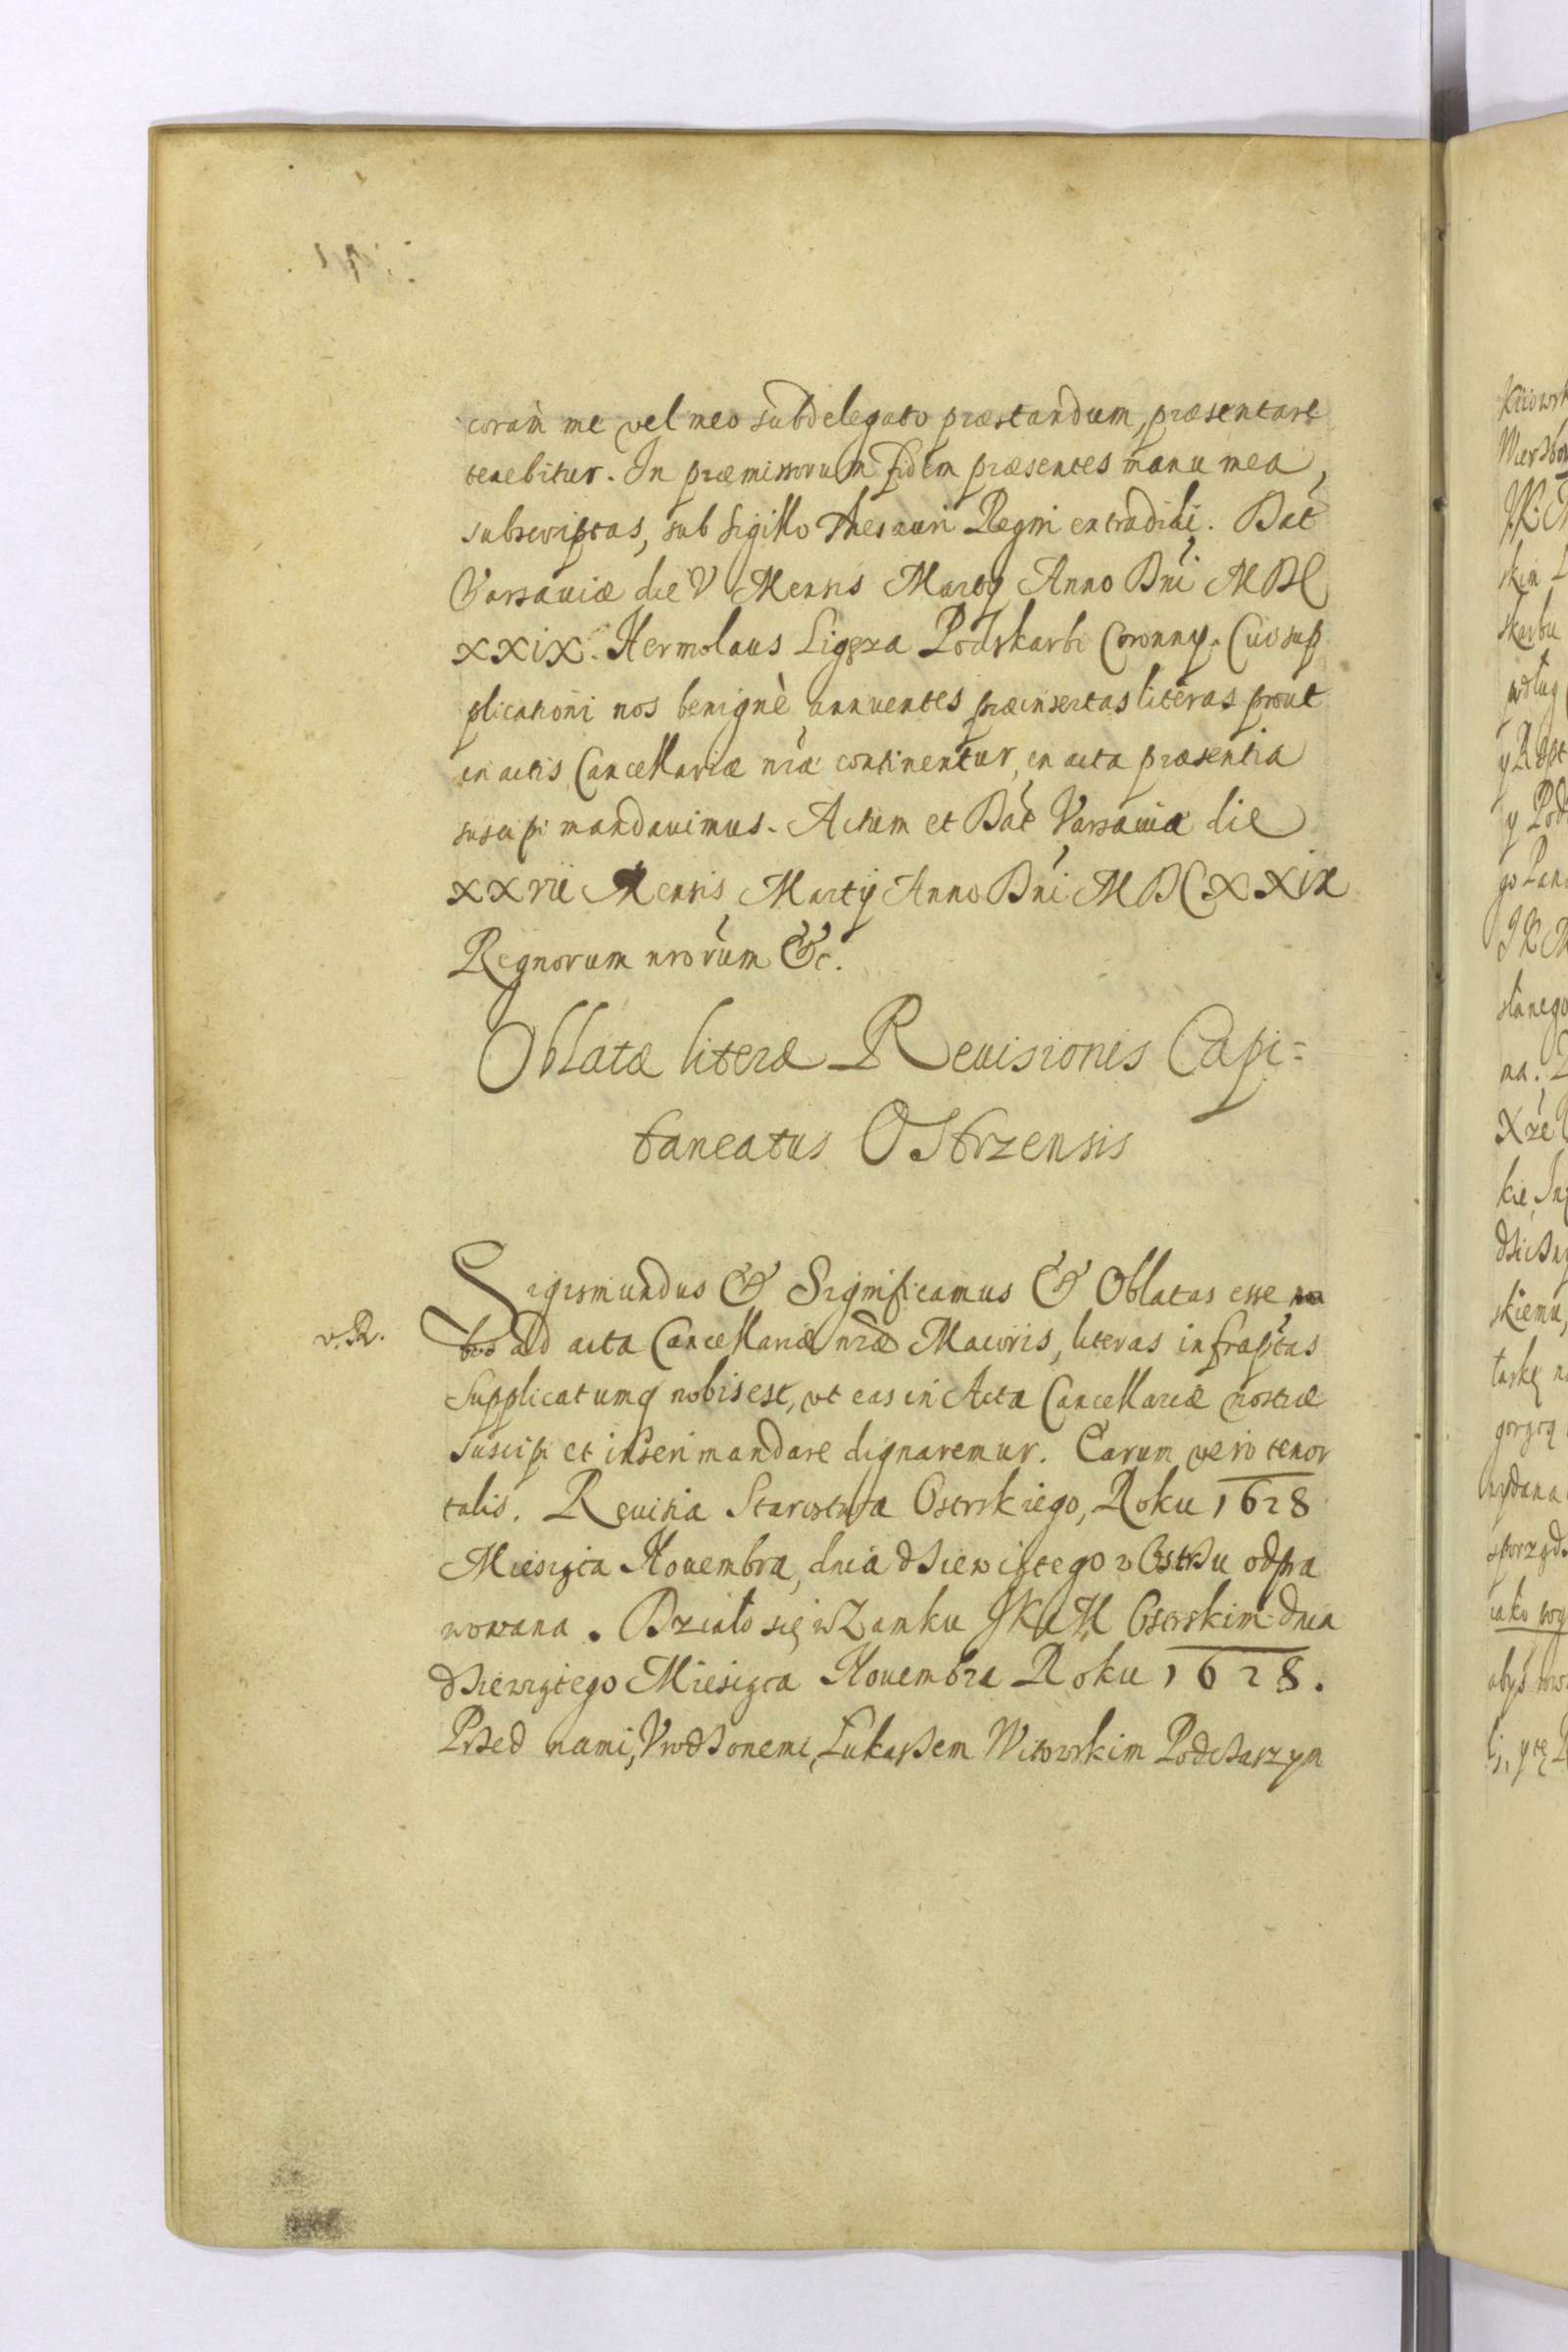 coràm me vel meo subdelegato præstandum, præsentare
tenebitur. In præmissorum fidem præsentes manu mea,
subscriptas, sub sigillo Thesauri Regni extradidi. Dat
Varsauiæ die V Mensis Martij Anno Dni MDC
XXIX. Hermolaus Ligęza Podskarbi Coronny. Cui sup
plicationi nos benignè annuentes præinsertas literas prout
in actis Cancellariæ nræ continentur, in acta præsentia
suscipi mandauimus. Actum et Dat Varsauiæ die
XXVII Mensis Martij Anno Dni MDCXXIX
Regnorum nrorum &c.
Oblatæ literæ Reuisionis Capi=
taneatus Ostrzensis
Sigismundus & Significamus & Oblatas esse
v. R.
ad acta Cancellariæ nræ Maioris, literas infraptas
Supplicatumq nobis est, vt eas in Acta Cancellariæ nostræ
suscipi et inseri mandare dignaremur. Earum vero tenor
talis. Reuisia Starostwa Ostrskiego, Roku 1628
Miesiąca Nouembra, dnia dziewiątego w Ostrzu odpra
wowana. Działo się w Zamku JKM Ostrskim dnia
dziewiątego Miesiąca Nouembra Roku 1628.
Przed nami, Vrodzonemi, Łukaszem Witowskim Podczaszym
Kiiowsk
skarbu
y Pod
stanego
na.
skiemu,